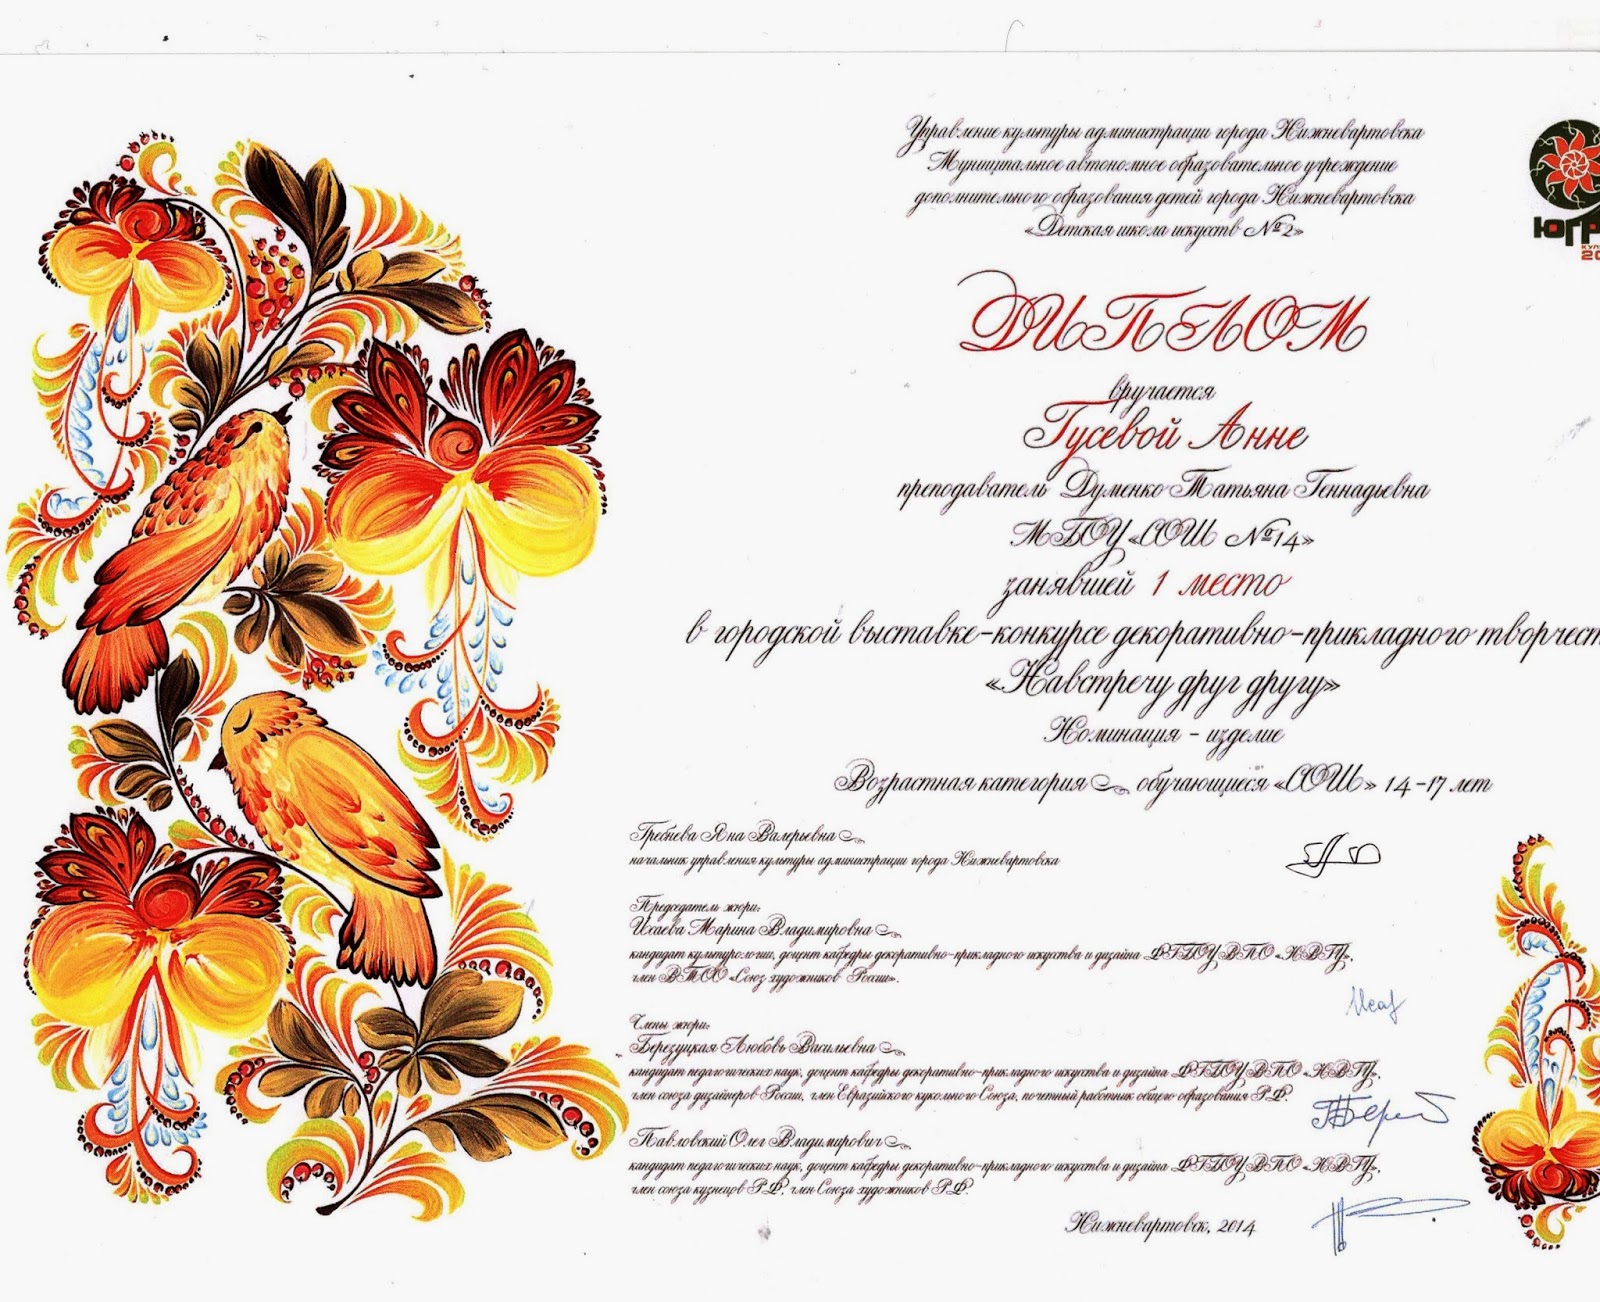 Управление культуры администрации города Нижневартовска
Муниципальное автономное образовательное учреждение
дополнительного образования детей города Нижневартовска
«Детская школа искусств №2»
ЮГР
ДИПЛОМ
вручается
Гусевой Анне
преподаватель Думенко Татьяна Геннадьевна
МБОУ «СОШ №14»
занявшей 1 место
в городской выставке-конкурсе декоративно-прикладного творчест
«Навстречу друг другу»
Номинация - изделие
Возрастная категория обучающиеся «СОШ» 14-17 лет
Гребнева Яна Валерьевна
начальник управления культуры администрации города Нижневартовска
Председатель жюри:
Исаева Марина Владимировна
кандидат культурологии, доцент кафедры декоративно-прикладного искусства и дизайна ФГБОУ ВПО «НВГУ»,
член ВТОО «Союз художников России».
Члены жюри:
Березуцкая Любовь Васильевна
кандидат педагогических наук, доцент кафедры декоративно-прикладного искусства и дизайна ФГБОУ ВПО «НВГУ»,
член союза дизайнеров России, член Евразийского кукольного Союза, почетный работник общего образования Р.Ф.
Павловский Олег Владимирович
кандидат педагогических наук, доцент кафедры декоративно-прикладного искусства и дизайна ФГБОУ ВПО «НВГУ»,
член союза кузнецов Р.Ф. член Союза художников Р.Ф.
Нижневартовск, 2014